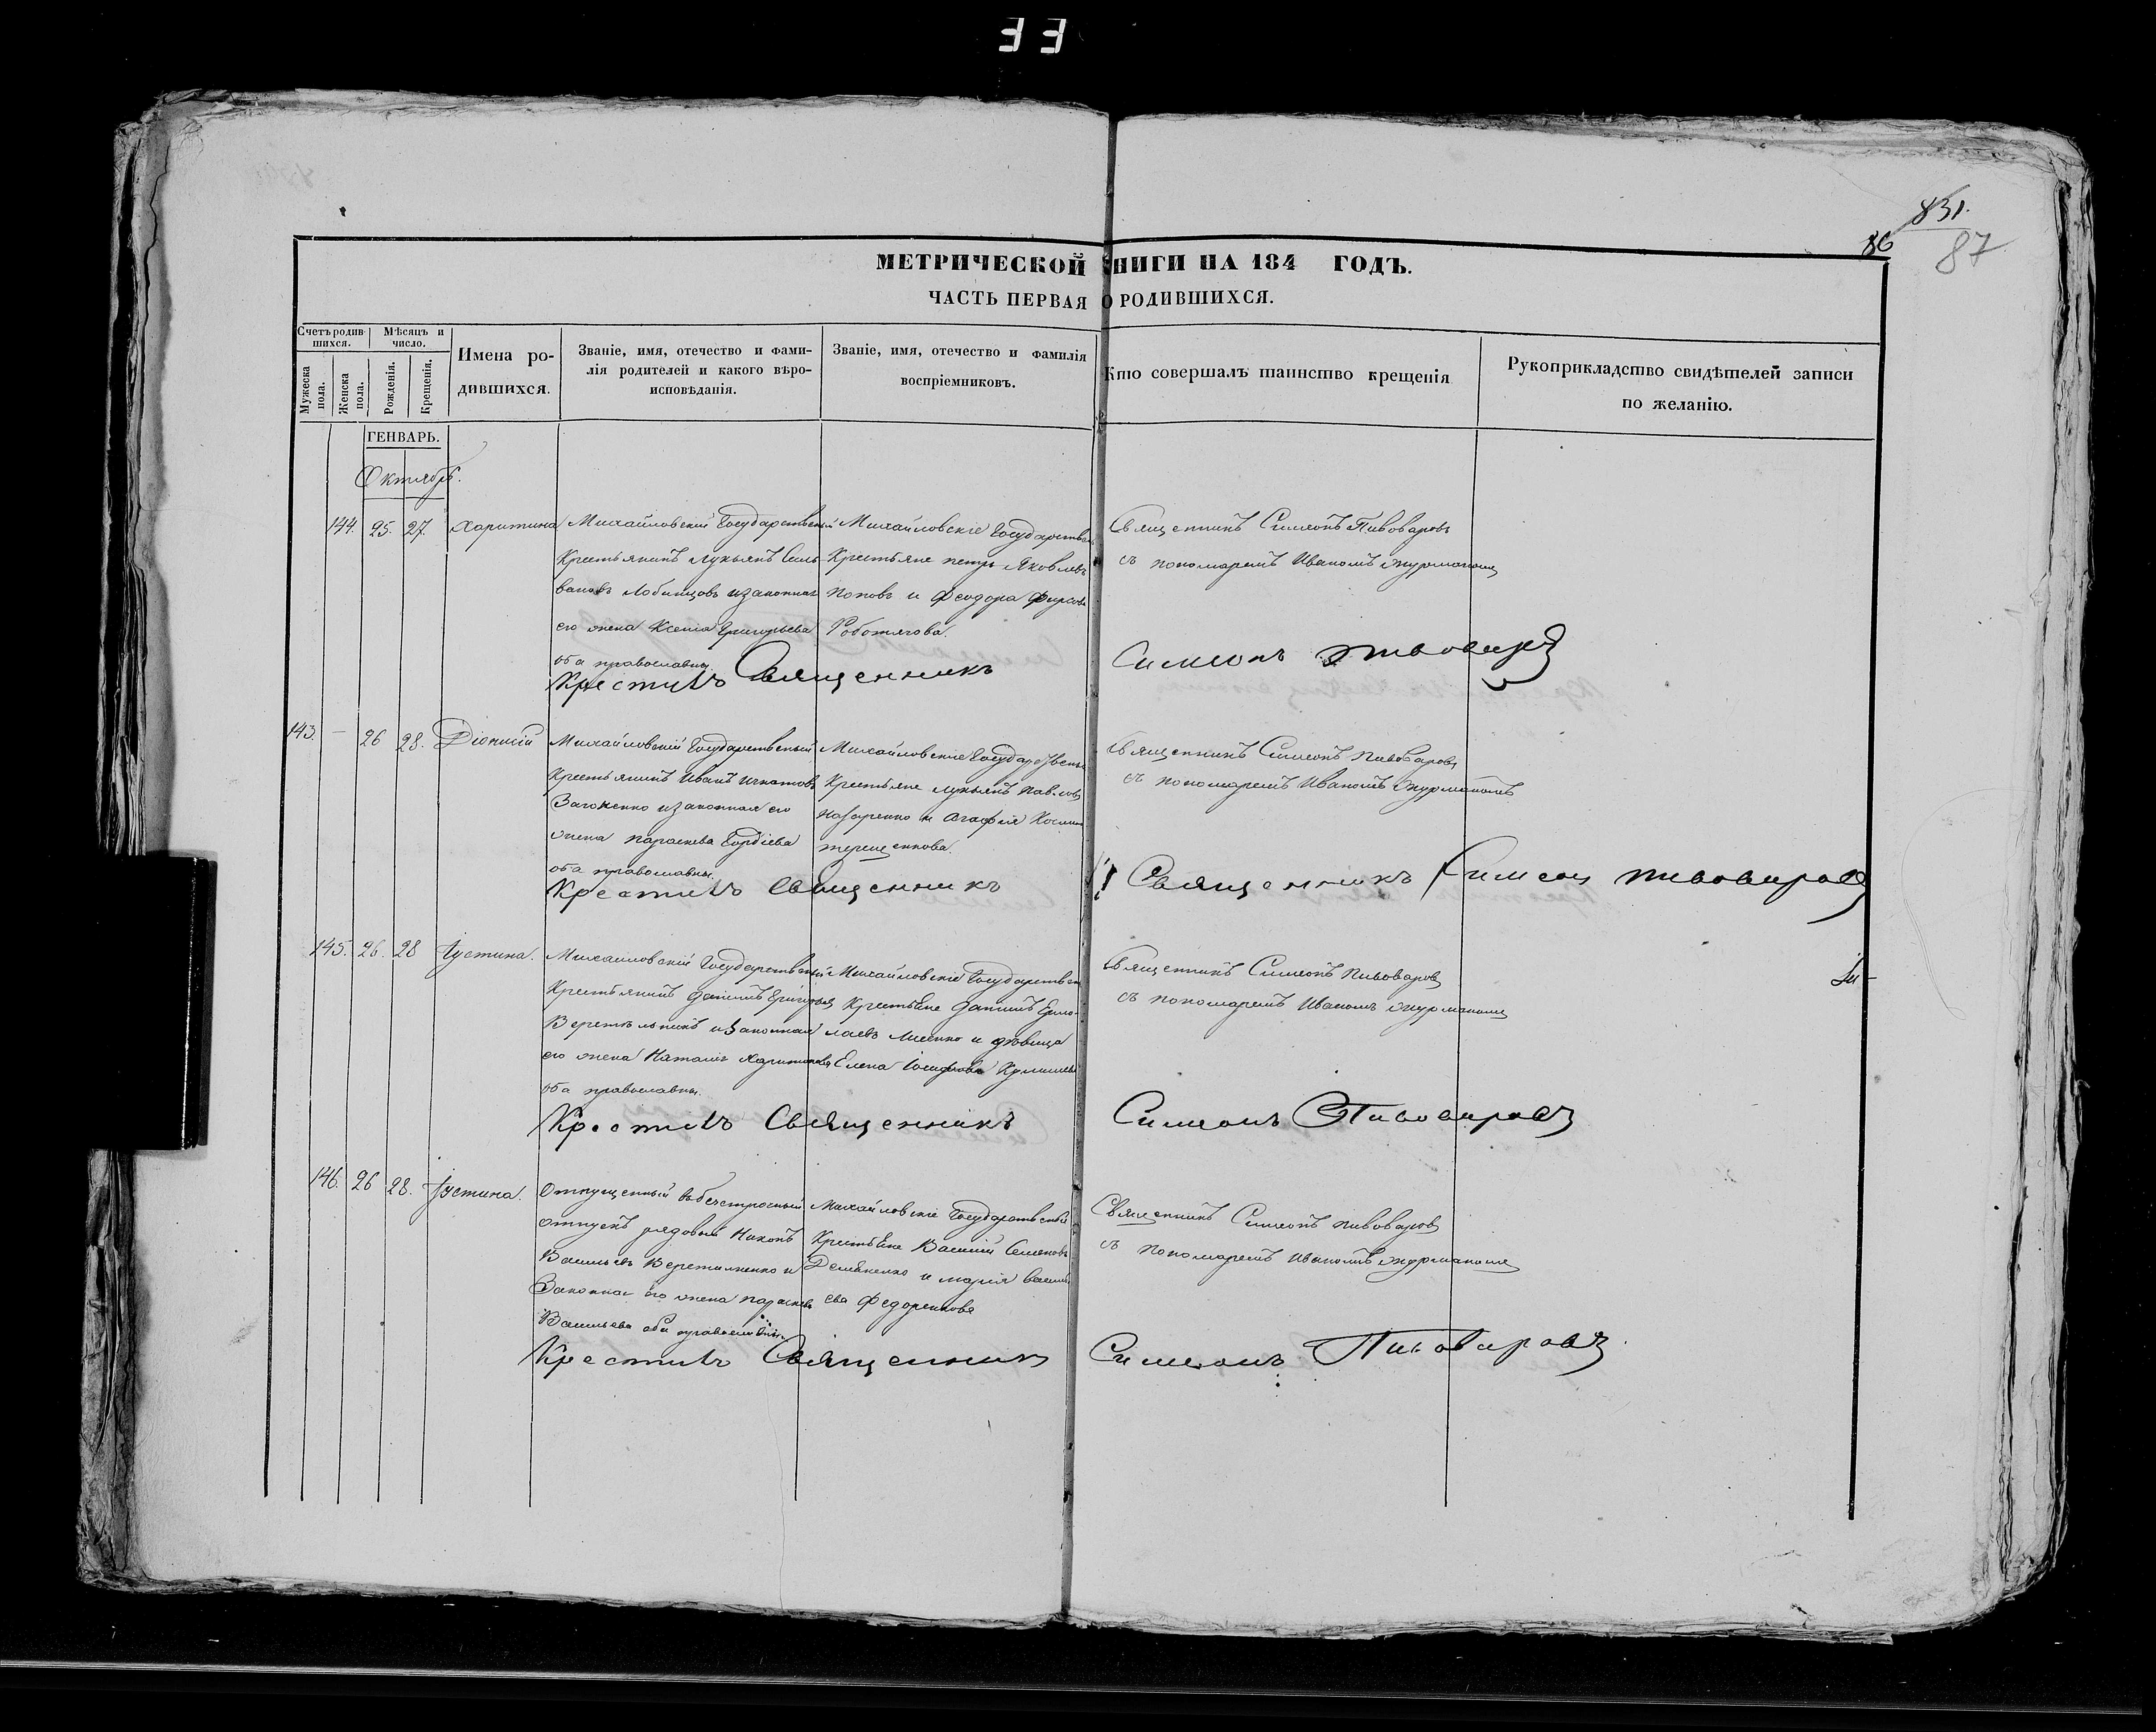 33
831.
86
87
МЕТРИЧЕСКОЙ КНИГИ НА 184 ГОДЪ.
ЧАСТЬ ПЕРВАЯ О РОДИВШИХСЯ.
Счетъ родившихся.
Мужеска пола.
Женска пола.
Мѣсяцъ и число.
Рожденія.
Крещенія.
Имена родившихся.
Званіе, имя, отечество и фамилія родителей и какого вѣроисповѣданія.
Званіе, имя, отечество и фамилія воспріемниковъ.
Кто совершалъ таинство крещенія
Рукоприкладство свидѣтелей записи по желанію.
ГЕНВАРЬ.
Октябрь.
144. 25. 27. Харитина
Михайловскій Государственный
Крестьянинъ Лукьянъ Силь-
вановъ Лобинцовъ и законная
его жена Ксенія Григорьева
оба православны.
Михайловскіе Государствен
Крестьяне петръ Яковлевъ
поповъ и Феодора Фирсова
Роботягова.
Священникъ Симеонъ Пивоваровъ
съ пономаремъ Иваномъ Журманомъ
Крестилъ Священникъ Симеонъ Пивоваровъ
143. — 26 28. Діонисій
Михайловскій Государственный
Крестьянинъ Иванъ Игнатовъ
и законная его
жена параскева Гордіева
оба православны.
Михайловскіе Государственны
Крестьяне лукьянъ Павловъ
назаренко и Агафія Космина
терещенкова.
Священникъ Симеонъ Пивоваровъ
съ пономаремъ Иваномъ Журманомъ
Крестилъ Священникъ
Священникъ Симеонъ Пивоваровъ
145. 26. 28 Іустина.
Михайловскій Государственный
Крестьянинъ Даніилъ Григорьевъ
и законная
его жена Наталія Харитонова
оба православны.
Михайловскіе Государствен
Крестьяне Даніилъ Ермо-
лаевъ Лисенко и дѣвица
Елена Іосифова
Священникъ Симеонъ Пивоваровъ
съ пономаремъ Иваномъ Журманомъ
Крестилъ Священникъ Симеонъ Пивоваровъ
146. 26 28. Іустина.
Отпущенный въ безсрочный
отпускъ рядовый Никонъ
Васильевъ Веретильненко и
Законная его жена параскева
Васильева оба православны.
Михайловскіе Государственные
Крестьяне Василій Семеновъ
Демяненко и марія Василь
ева Федоренкова
Священникъ Симеонъ Пивоваровъ
съ пономаремъ Иваномъ Журманомъ
Крестилъ Священникъ Симеонъ Пивоваровъ